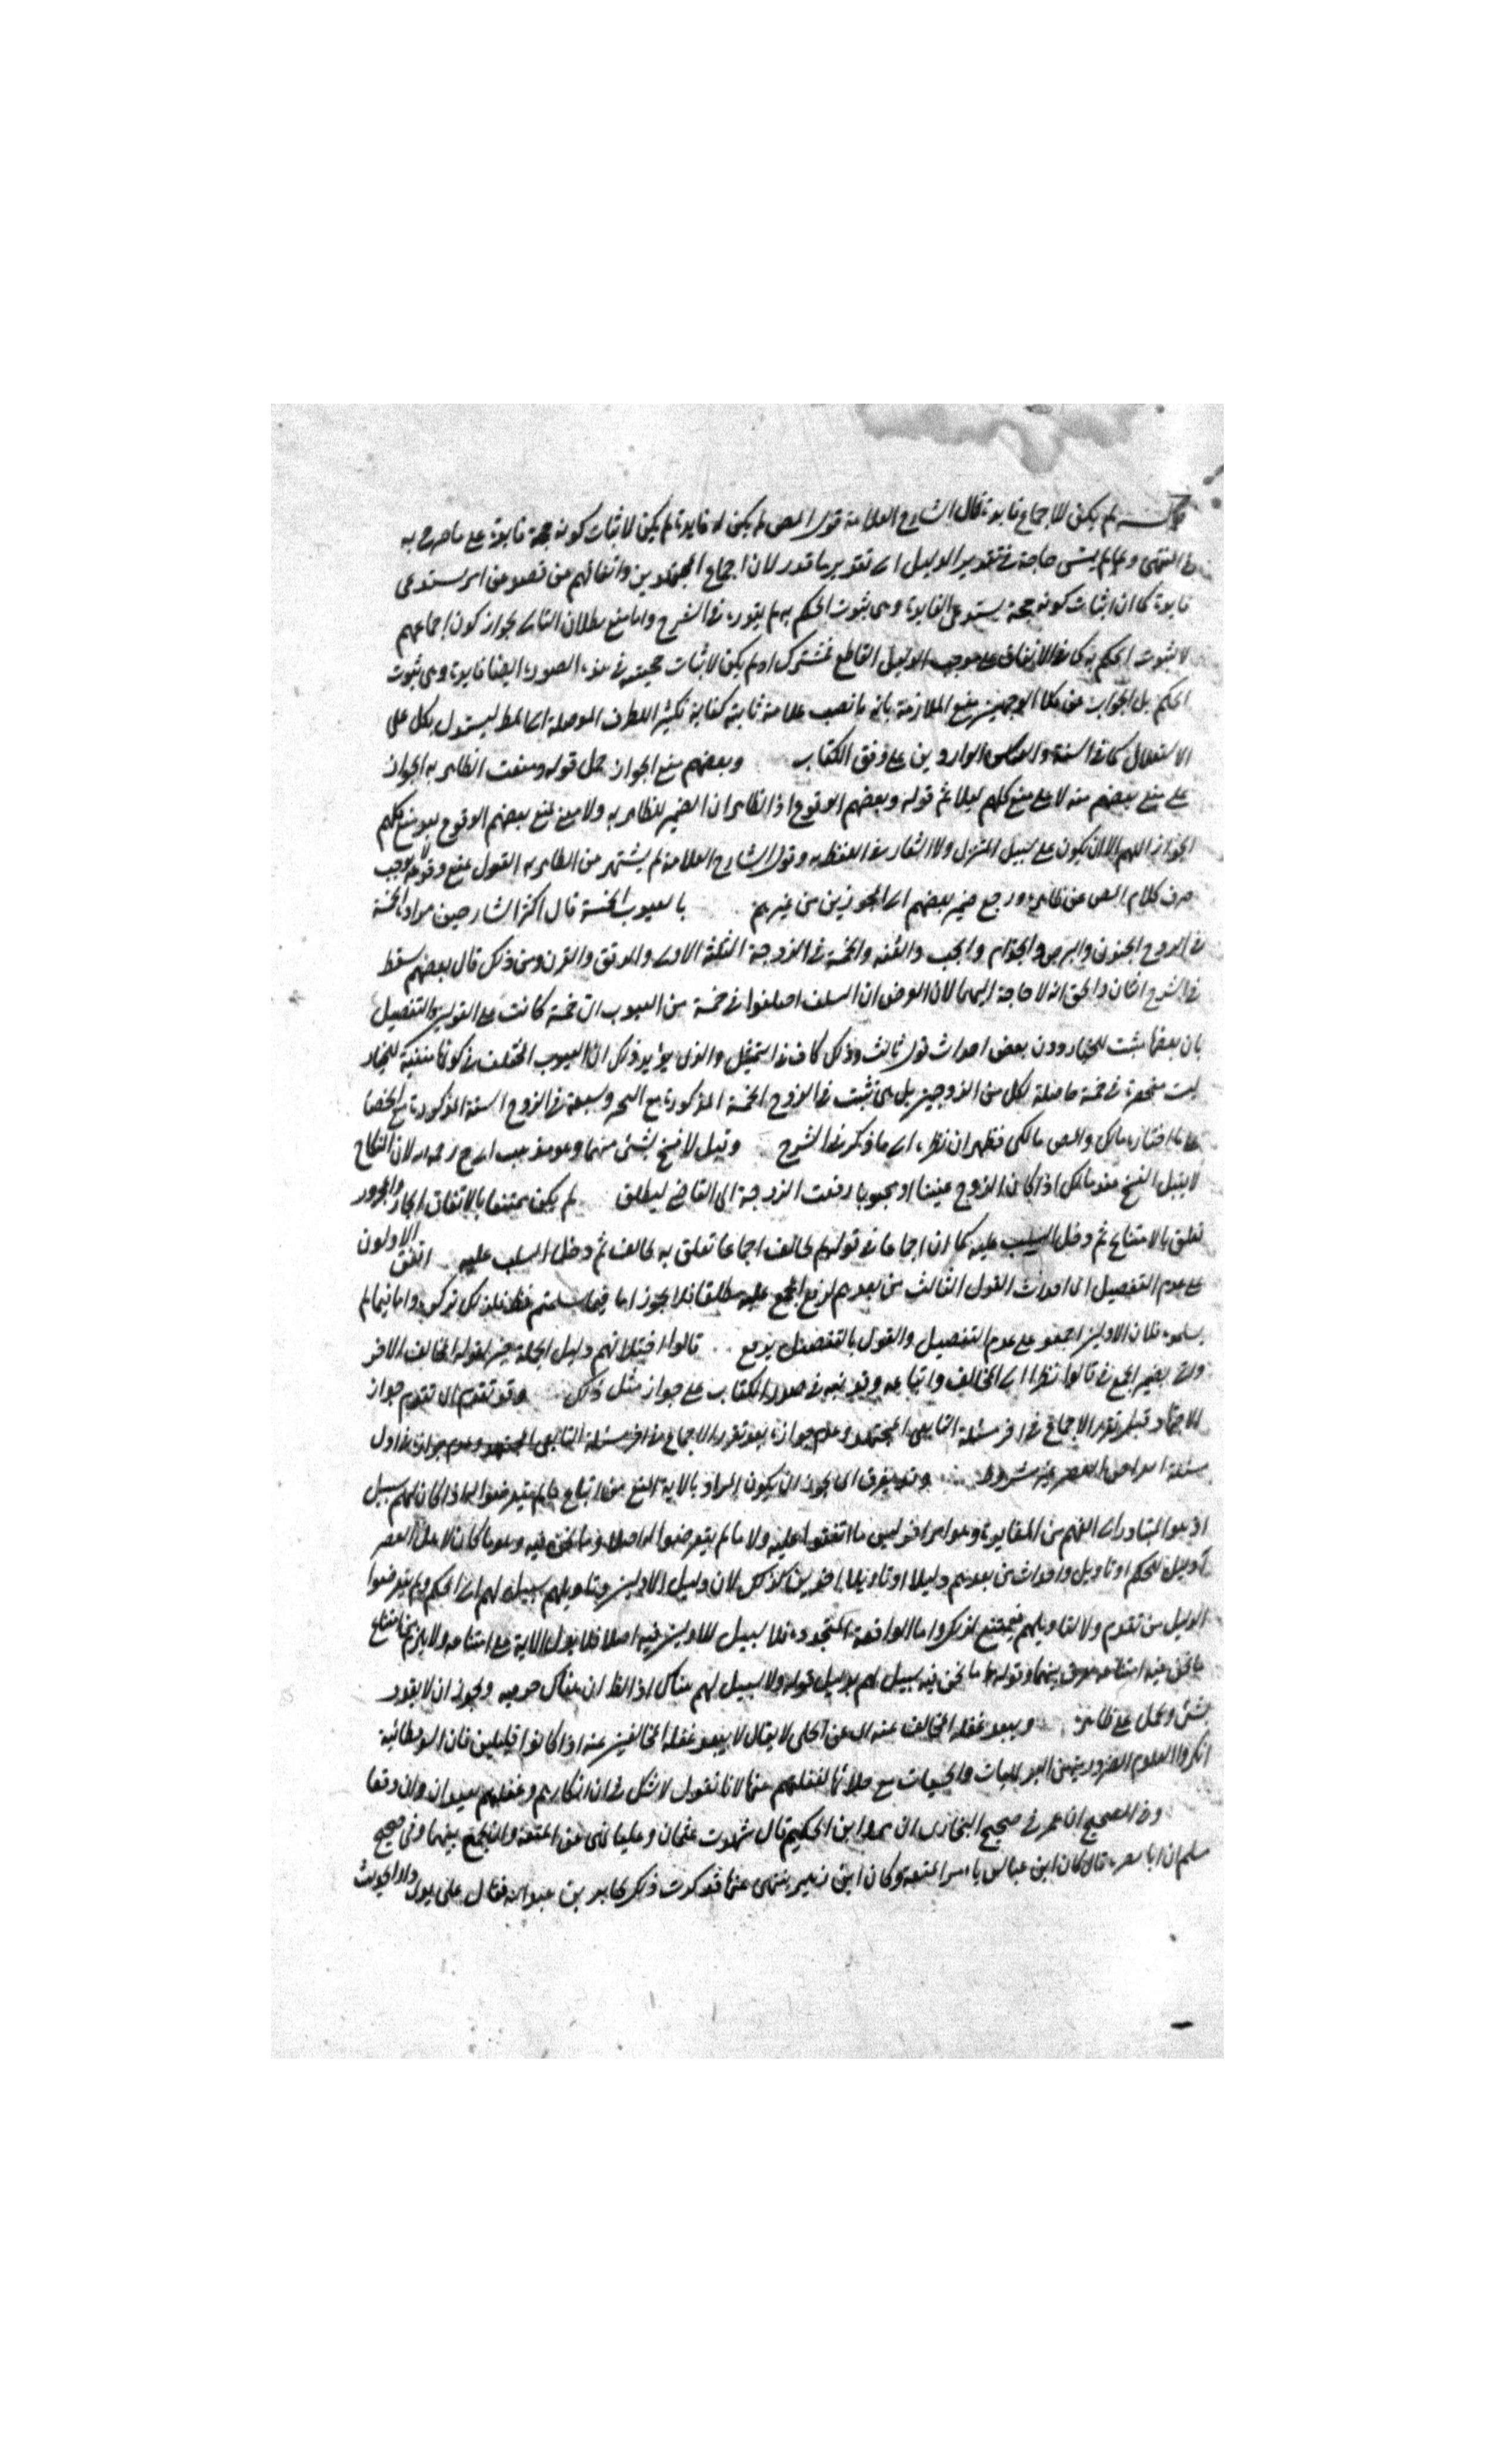 لم يكن للاجماع فايدة قال الشارح العلامة قول المص لم يكن له فايدة لم يكن لاثبات كونه حجة فايدة على ما صرح به
المنتهى حاجة في تقدير الدليل الى تقدير ما قدر لان اجماع المجتهدين واتفاقهم من قصد من امر يستدعى
فايدة كما ان اثبات كونه حجة يستدعى الفايدة وهى ثبوت الحكم به لم يقدره في الشرح واما منع بطلان التالى بجواز كون اجماعهم
لا لثبوت الحكم به كما في الاتفاق على موجب الدليل القاطع فمشترك اذ لم يكن لاثبات حجيته في هذه الصورة ايضا فايدة وهى ثبوت
الحكم بل الجواب عن كلا الوجهين منع الملازمة بانه ما نصب علامة ثانية كفاية تكثير الطرق الموصلة الى المط ليستدل بكل على
الاستقلال كما في السنة والقياس الواردين على وفق الكتاب وبعضهم منع الجواز حمل قوله ومنعت الظاهرية الجواز
على منع بعضهم منه لا على منع كلهم ليلائم قوله وبعضهم الوقوع اذ الظاهر ان الضمير للظاهرية ولا معنى لمنع بعضهم الوقوع بعد منع كلهم
الجواز اللهم الا ان يكون على سبيل التنزل وقول الشارح العلامة لم يشتهر من الظاهرية القول بمنع وقوعه لا يوجب
صرف كلام المص عن ظاهره ورجع ضمير بعضهم الى المجوزين من غيرهم بالعيوب الخمسة قال اكثر الشارحين مراده الخمسة
في الزوج الجنون والبرص والجذام والجب والعنة والخمسة في الزوجة الثلثة الاول والرتق والقرن ومن ذلك قال بعضهم سقط
في الشرح والحق انه لا حاجة اليهما لان الغرض ان السلف اختلفوا في خمسة من العيوب اى خمسة كانت على القولين والتفصيل
بان بعضها يثبت الخيار دون بعض احداث قول ثالث وذلك كاف في التمثيل والذى يؤيد ذلك ان العيوب المختلف في كونها مثبتة للخيار
ليست منحصرة في خمسة حاصلة لكل من الزوجين بل هى تثبت في الزوج الخمسة المذكورة مع وسبعة في الزوج الستة المذكورة مع الخصا
على ما اختاره مالك والمص مالكى فظهر ان نظره الى ما ذكر في الشرح وقيل لا فسخ بشئ منها وهو مذهب ابى ح رحمه الله لان النكاح
لا يقبل الفسخ عنده لكن اذا كان الزوج عنينا او مجبوبا رفعت الزوجة الى القاضى ليطلق لم يكن ممتنعا بالاتفاق الجار والمجرور
تعلق بالامتناع ثم دخل السلب عليه كما ان اجماعا في قولهم لم يخالف اجماعا تعلق به يخالف ثم دخل السلب عليه اتفق الاولون
على عدم التفصيل اى احداث القول الثالث من بعدهم لرفع المجمع عليه مطلقا فلا يجوز اما فيما سلمتم فلذلك تركوه واما فيما لم
يسلموه فلان الاولين اجمعوا على عدم التفصيل والقول بالتفصيل يرفع قالوا اختلافهم دليل لقوله المخالف الاخر
واتى بضمير الجمع في قالوا نظرا الى المخالف واتباعه وقد نبه في صدر الكتاب على جواز مثل ذلك وقد تقدم اى تقدم جواز
الاجتهاد قبل تقرر الاجماع في اخر مسئلة التابعى المجتهد وعدم جوازه بعد تقرر الاجماع في اول
مسئلة انقراض العصر غير مشروط وقد يفرق اى يجوز ان يكون المراد بالاية المنع من اتباع ما لم يتعرضوا له اذا كان لهم سبيل
اذ هو المتبادر الى الفهم من المغايرة وهو امر اخر ليس ما اتفقوا عليه ولا ما لم يتعرضوا له اصلا وما نحن فيه وهو ما كان لاهل العصر
دليل للحكم او تاويل واحداث من بعدهم دليلا او تاويلا اخرين كذلك لان دليل الاولين وتاويلهم سبيل لهم الى الحكم ولم يتعرضوا
الدليل من تقدم ولا لتاويلهم فيمتنع لذلك واما الواقعة المتجددة فلا سبيل للاولين فيه اصلا فلا تدل الاية على امتناعه ولا يلزم من امتناع
ما نحن فيه امتناعه لفرق بينهما وقوله ما نحن فيه سبيل لهم بدليل قوله ولا سبيل لهم هناك اذ الظ ان هناك ويجوز ان لا يقدر
شئ ويحمل على ظاهره ويبعد غفلة المخالف عنه اى عن الجلى لا يقال لا يبعد غفلة المخالفين عنه اذا كانوا قليلين فان السوفسطائية
انكروا العلوم الضرورية من البديهيات والحسيات مع جلائها لغفلتهم عنها لانا نقول لا شك في ان انكارهم وغفلتهم بعيد ان وان وقعا
وفى الصحيح ان عمر في صحيح البخارى ان مروان بن الحكم قال شهدت عثمان وعليا نهى عن المتعة وان يجمع بينهما وفى صحيح
مسلم ان ابا نضرة قال كان ابن عباس يامر بالمتعة وكان ابن زبير ينهى عنها فذكرت ذلك لجابر بن عبد الله فقال على يدى دار الحديث